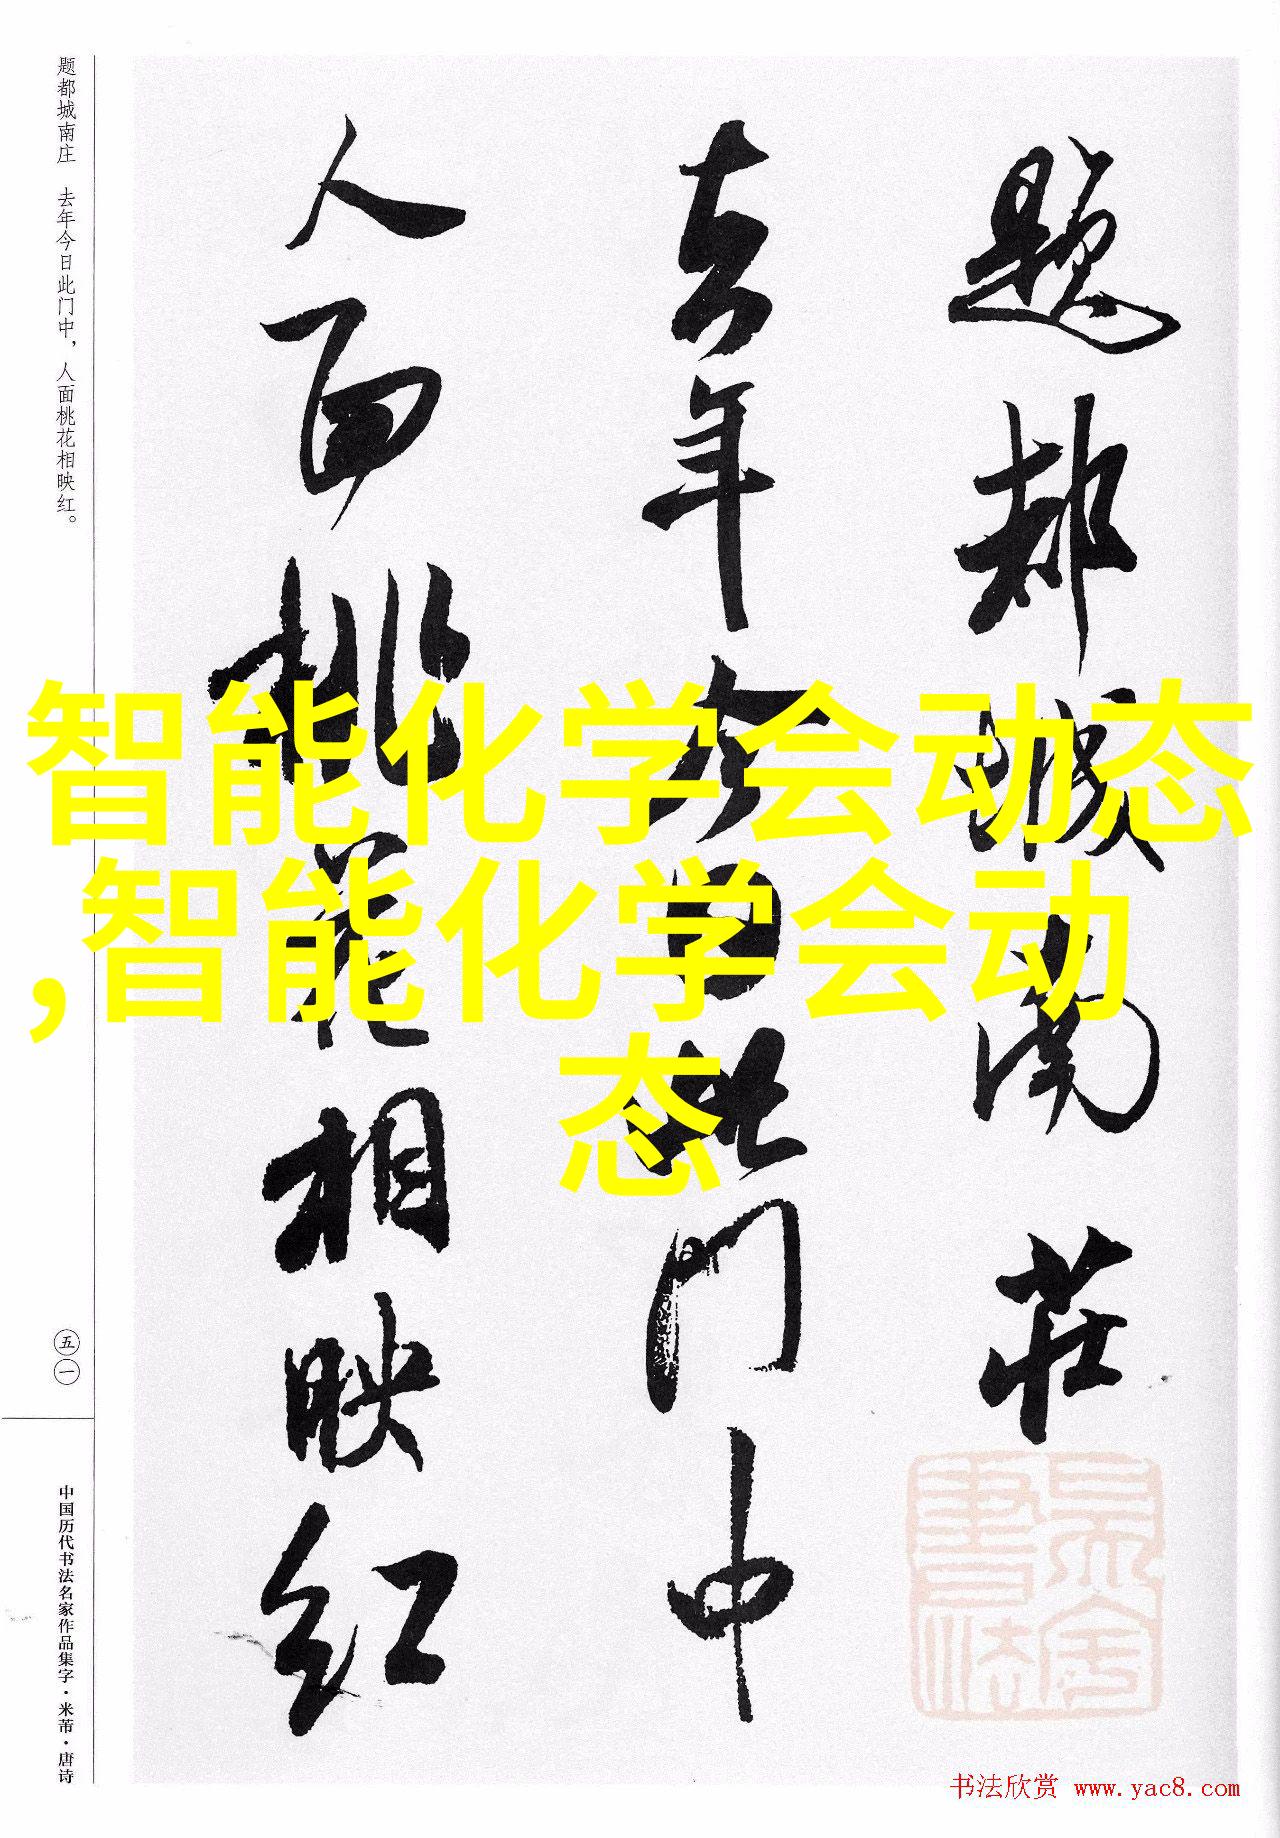 题都城南莊
去年今日此门中
人面桃花相映红
题都城南庄 去年今日此门中，人面桃花相映红。
五一
中国历代书法名家作品集字·米芾·唐诗
智能化学会动态
,智能化学会动
态
书法欣赏 www.yac8.com